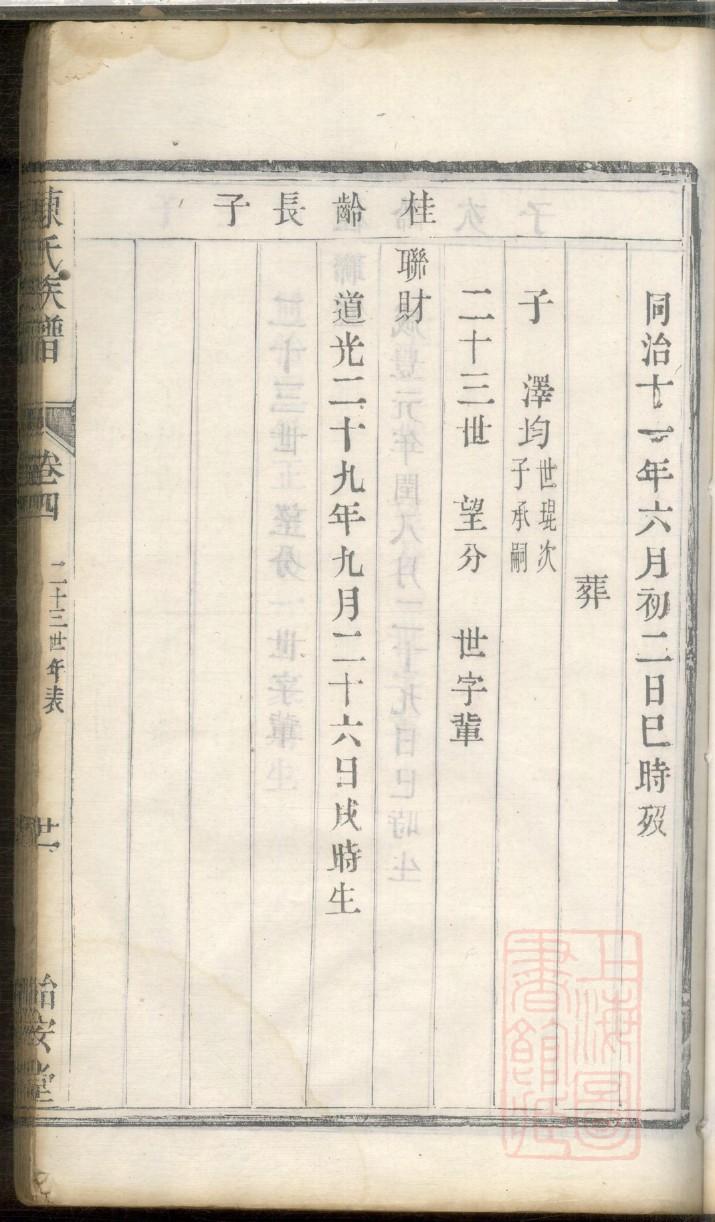 同治十一年六月初二日巳時歿
葬
子 澤均 世琨次子承嗣
二十三世 望分 世字輩
桂齡長子
聯財
道光二十九年九月二十六日戌時生
陳氏族譜 卷四 二十三世年表 廿 怡安堂
上海圖書館藏